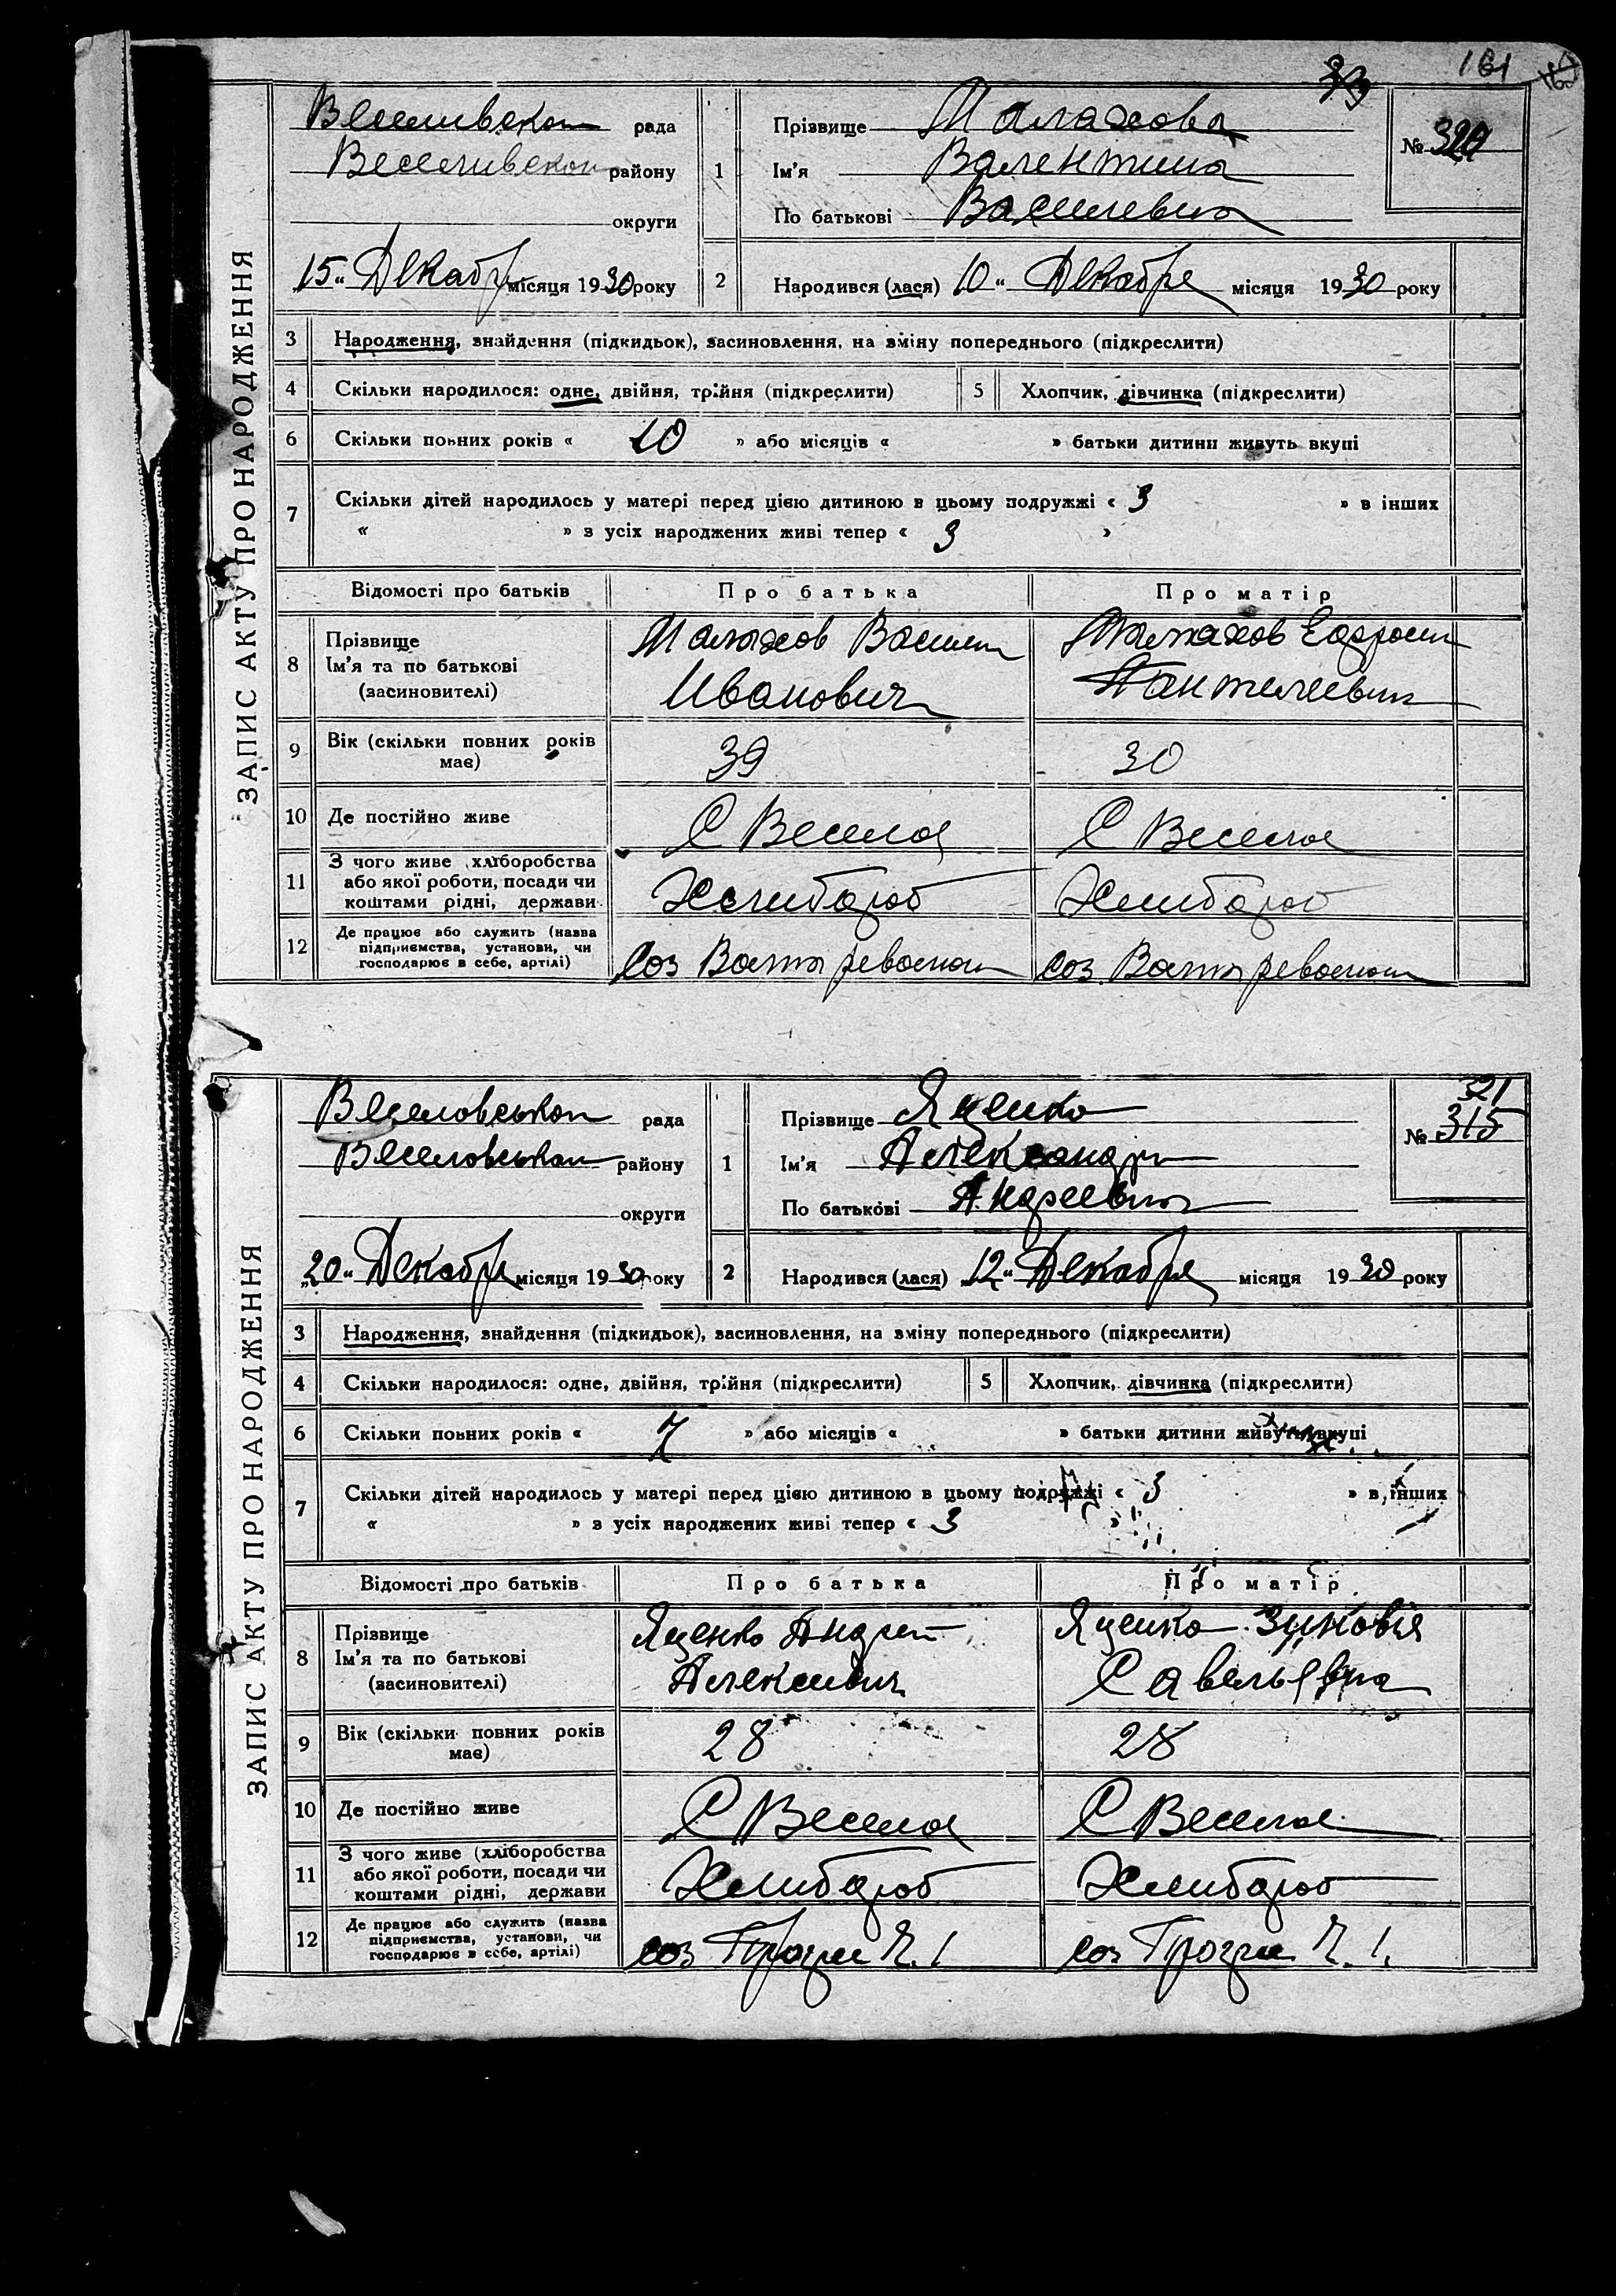 161
ЗАПИС АКТУ ПРО НАРОДЖЕННЯ
рада
району
округи
15 „ Декабр місяця 1930 року
1
Прізвище Малахова
Ім'я Валентина
По батькові Василевна
№ 320
2
Народився (лася) 10 „ Декабре місяця 1930 року
3 Народження, знайдення (підкидьок), засиновлення, на зміну попереднього (підкреслити)
4 Скільки народилося: одне, двійня, трійня (підкреслити)
5 Хлопчик, дівчинка (підкреслити)
6 Скільки повних років « 10 » або місяців « » батьки дитини живуть вкупі
7 Скільки дітей народилось у матері перед цією дитиною в цьому подружжі « 3 » в інших
« » з усіх народжених живі тепер « 3 »
Відомості про батьків Про батька Про матір
8 Прізвище
Ім'я та по батькові
(засиновителі)
Малахов Васили
Иванович
Малахов
Пантелеевн
9 Вік (скільки повних років
має)
39 30
10 Де постійно живе С Весела С Веселое
11 З чого живе (хліборобства
або якої роботи, посади чи
коштами рідні, держави
Хлибороб Хлибороб
12 Де працює або служить (назва
підприємства, установи, чи
господарює в себе, артілі)
Соз Соз
ЗАПИС АКТУ ПРО НАРОДЖЕННЯ
Веселовськой рада
Веселовськой району
округи
„20 „ Декабре місяця 1930 року
1
Прізвище Яценко
Ім'я Александра
По батькові Андреевна
321
№ 315
2
Народився (лася) 12 „ Декабре місяця 1930 року
3 Народження, знайдення (підкидьок), засиновлення, на зміну попереднього (підкреслити)
4 Скільки народилося: одне, двійня, трійня (підкреслити)
5 Хлопчик, дівчинка (підкреслити)
6 Скільки повних років « 7 » або місяців « » батьки дитини живуть вкупі
7 Скільки дітей народилось у матері перед цією дитиною в цьому подружжі « 3 » в інших
« » з усіх народжених живі тепер « 3 »
Відомості про батьків Про батька Про матір
8 Прізвище
Ім'я та по батькові
(засиновителі)
Яценко Андрей
Алексеевич
Яценко Зиновія
Савельевна
9 Вік (скільки повних років
має)
28 28
10 Де постійно живе С Весела С Веселое
11 З чого живе (хліборобства
або якої роботи, посади чи
коштами рідні, держави
Хлибороб Хлибороб
12 Де працює або служить (назва
підприємства, установи, чи
господарює в себе, артілі)
соз соз